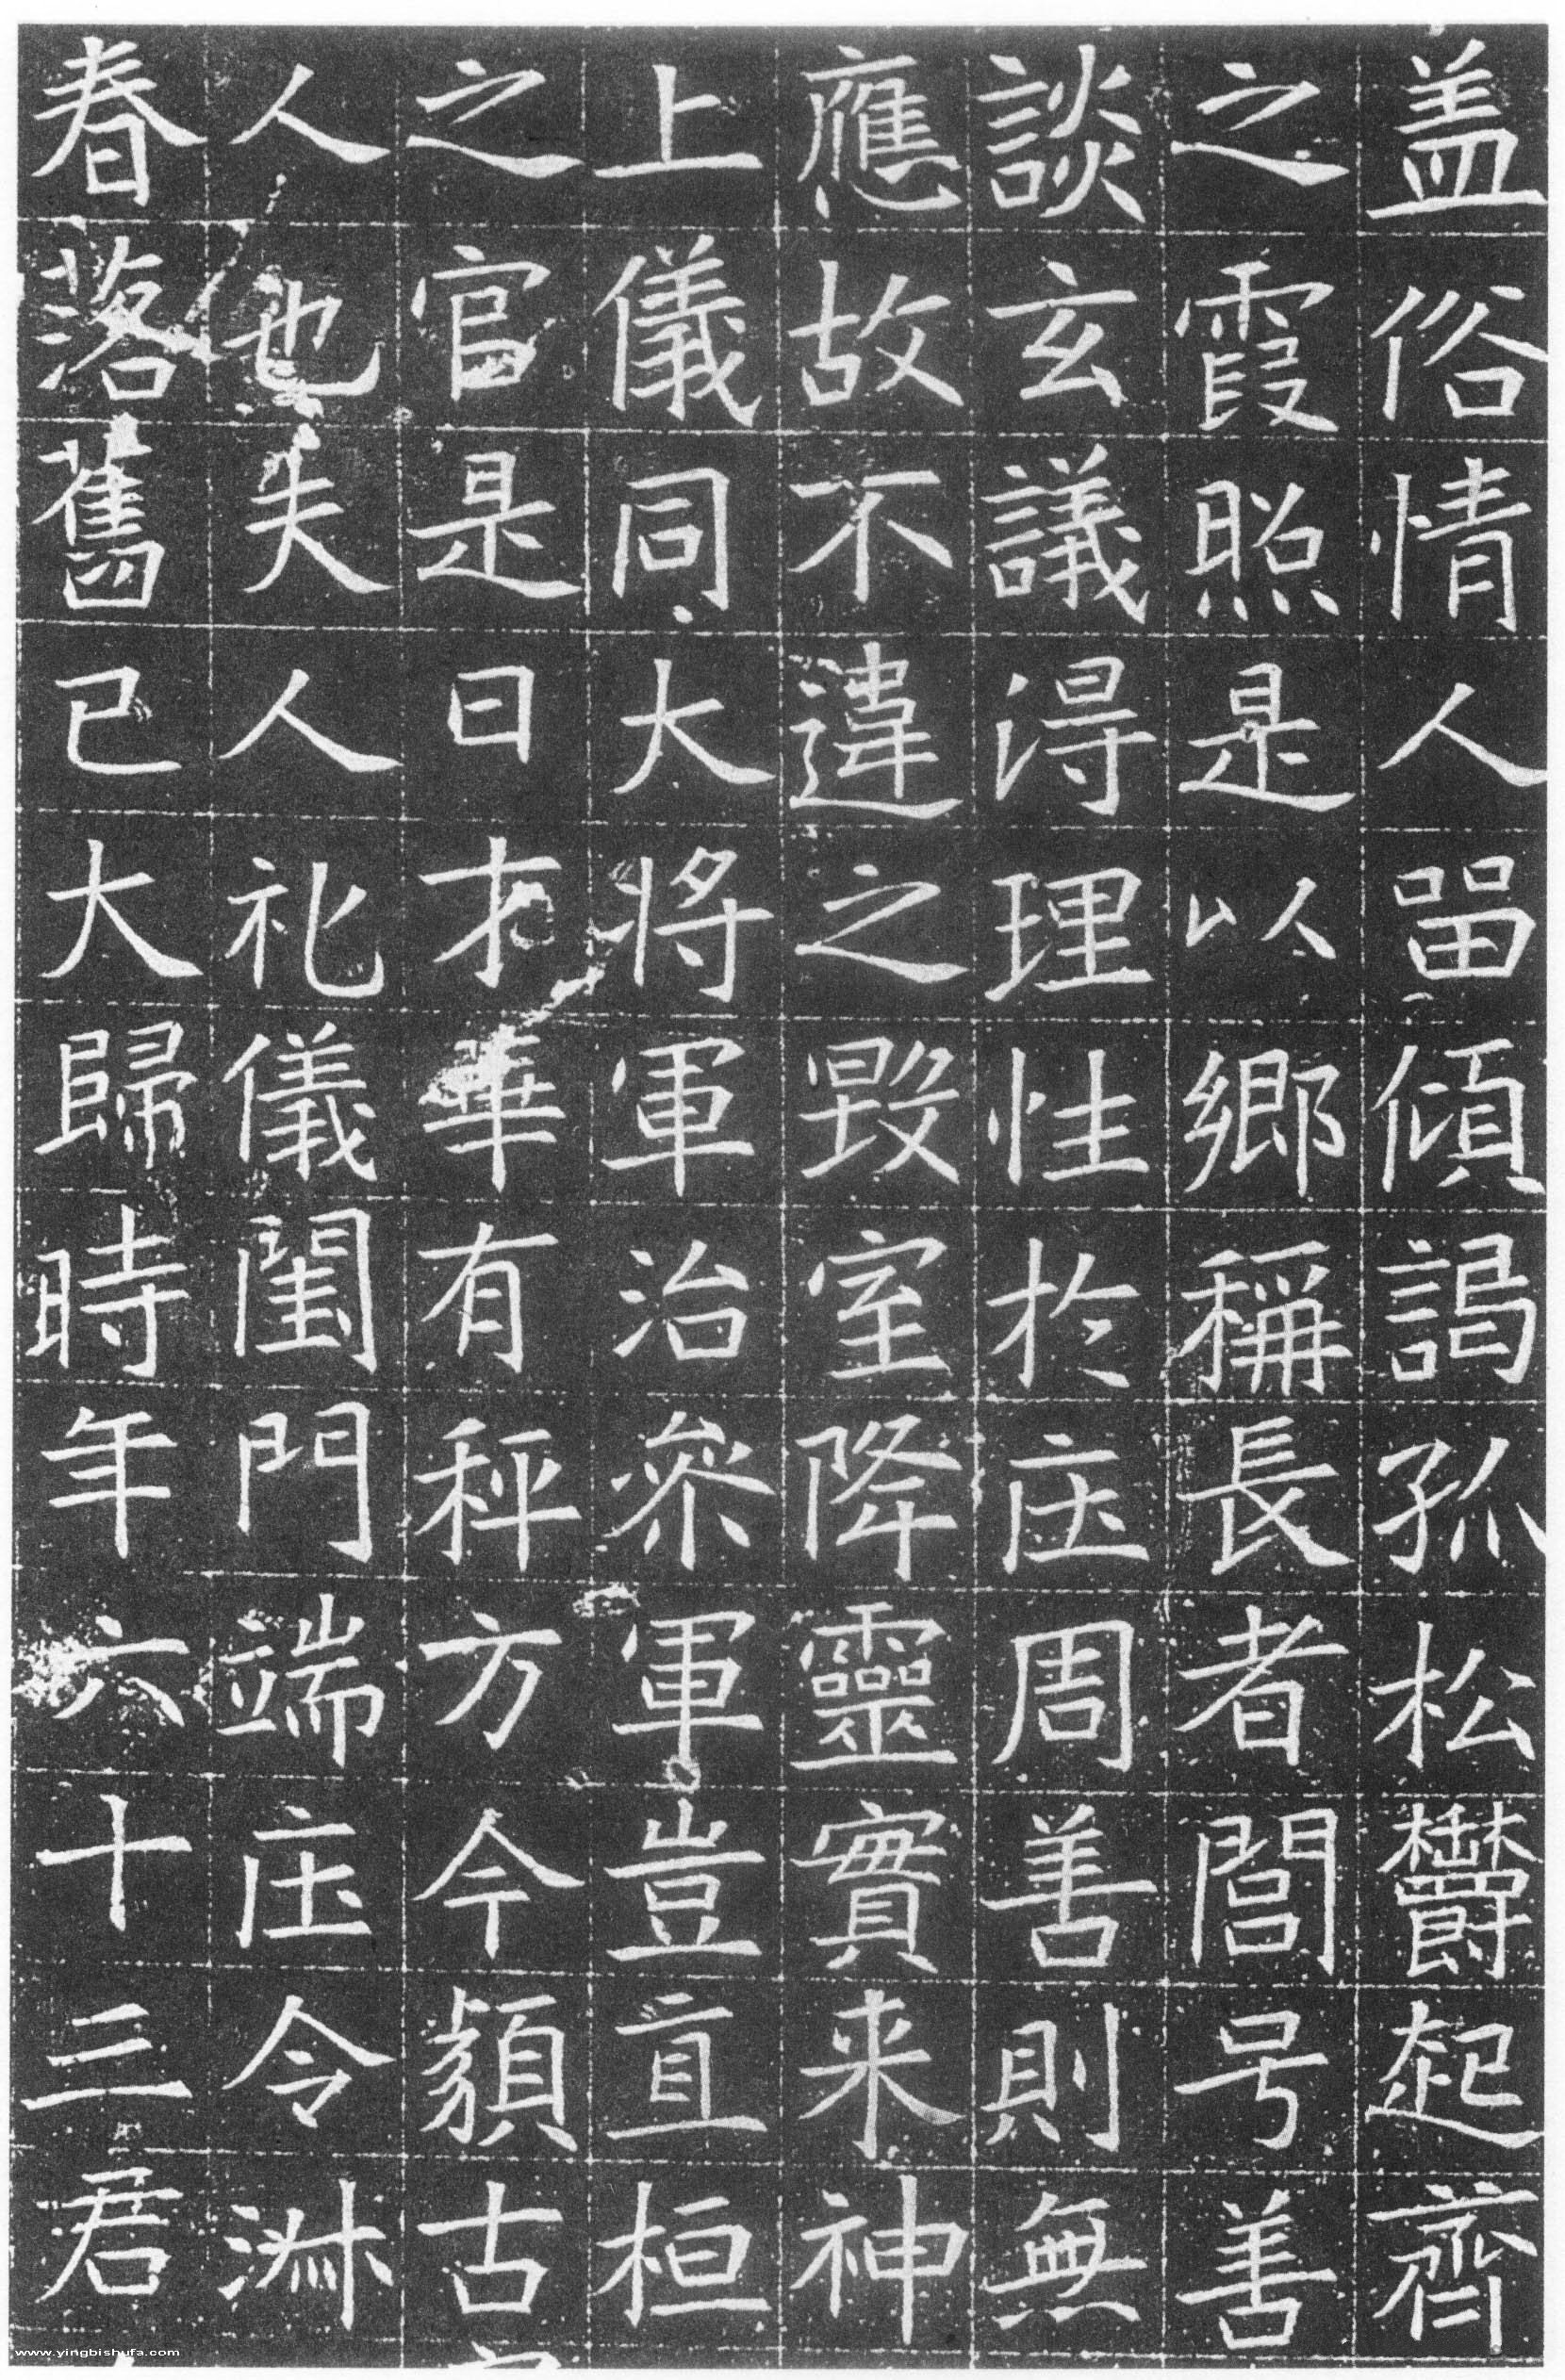 盖俗情人畱傾謁孤松欝起齊
之霞照是以鄉稱長者閭号善
談玄議淂理性於庄周善則無
應故不違之毀室降靈實来神
上儀同大將軍治叅軍豈直桓
之官是曰才華有秤方今類古
人也夫人礼儀閨門端庄令淑
春落舊已大歸時年六十三君
www.yingbishufa.com